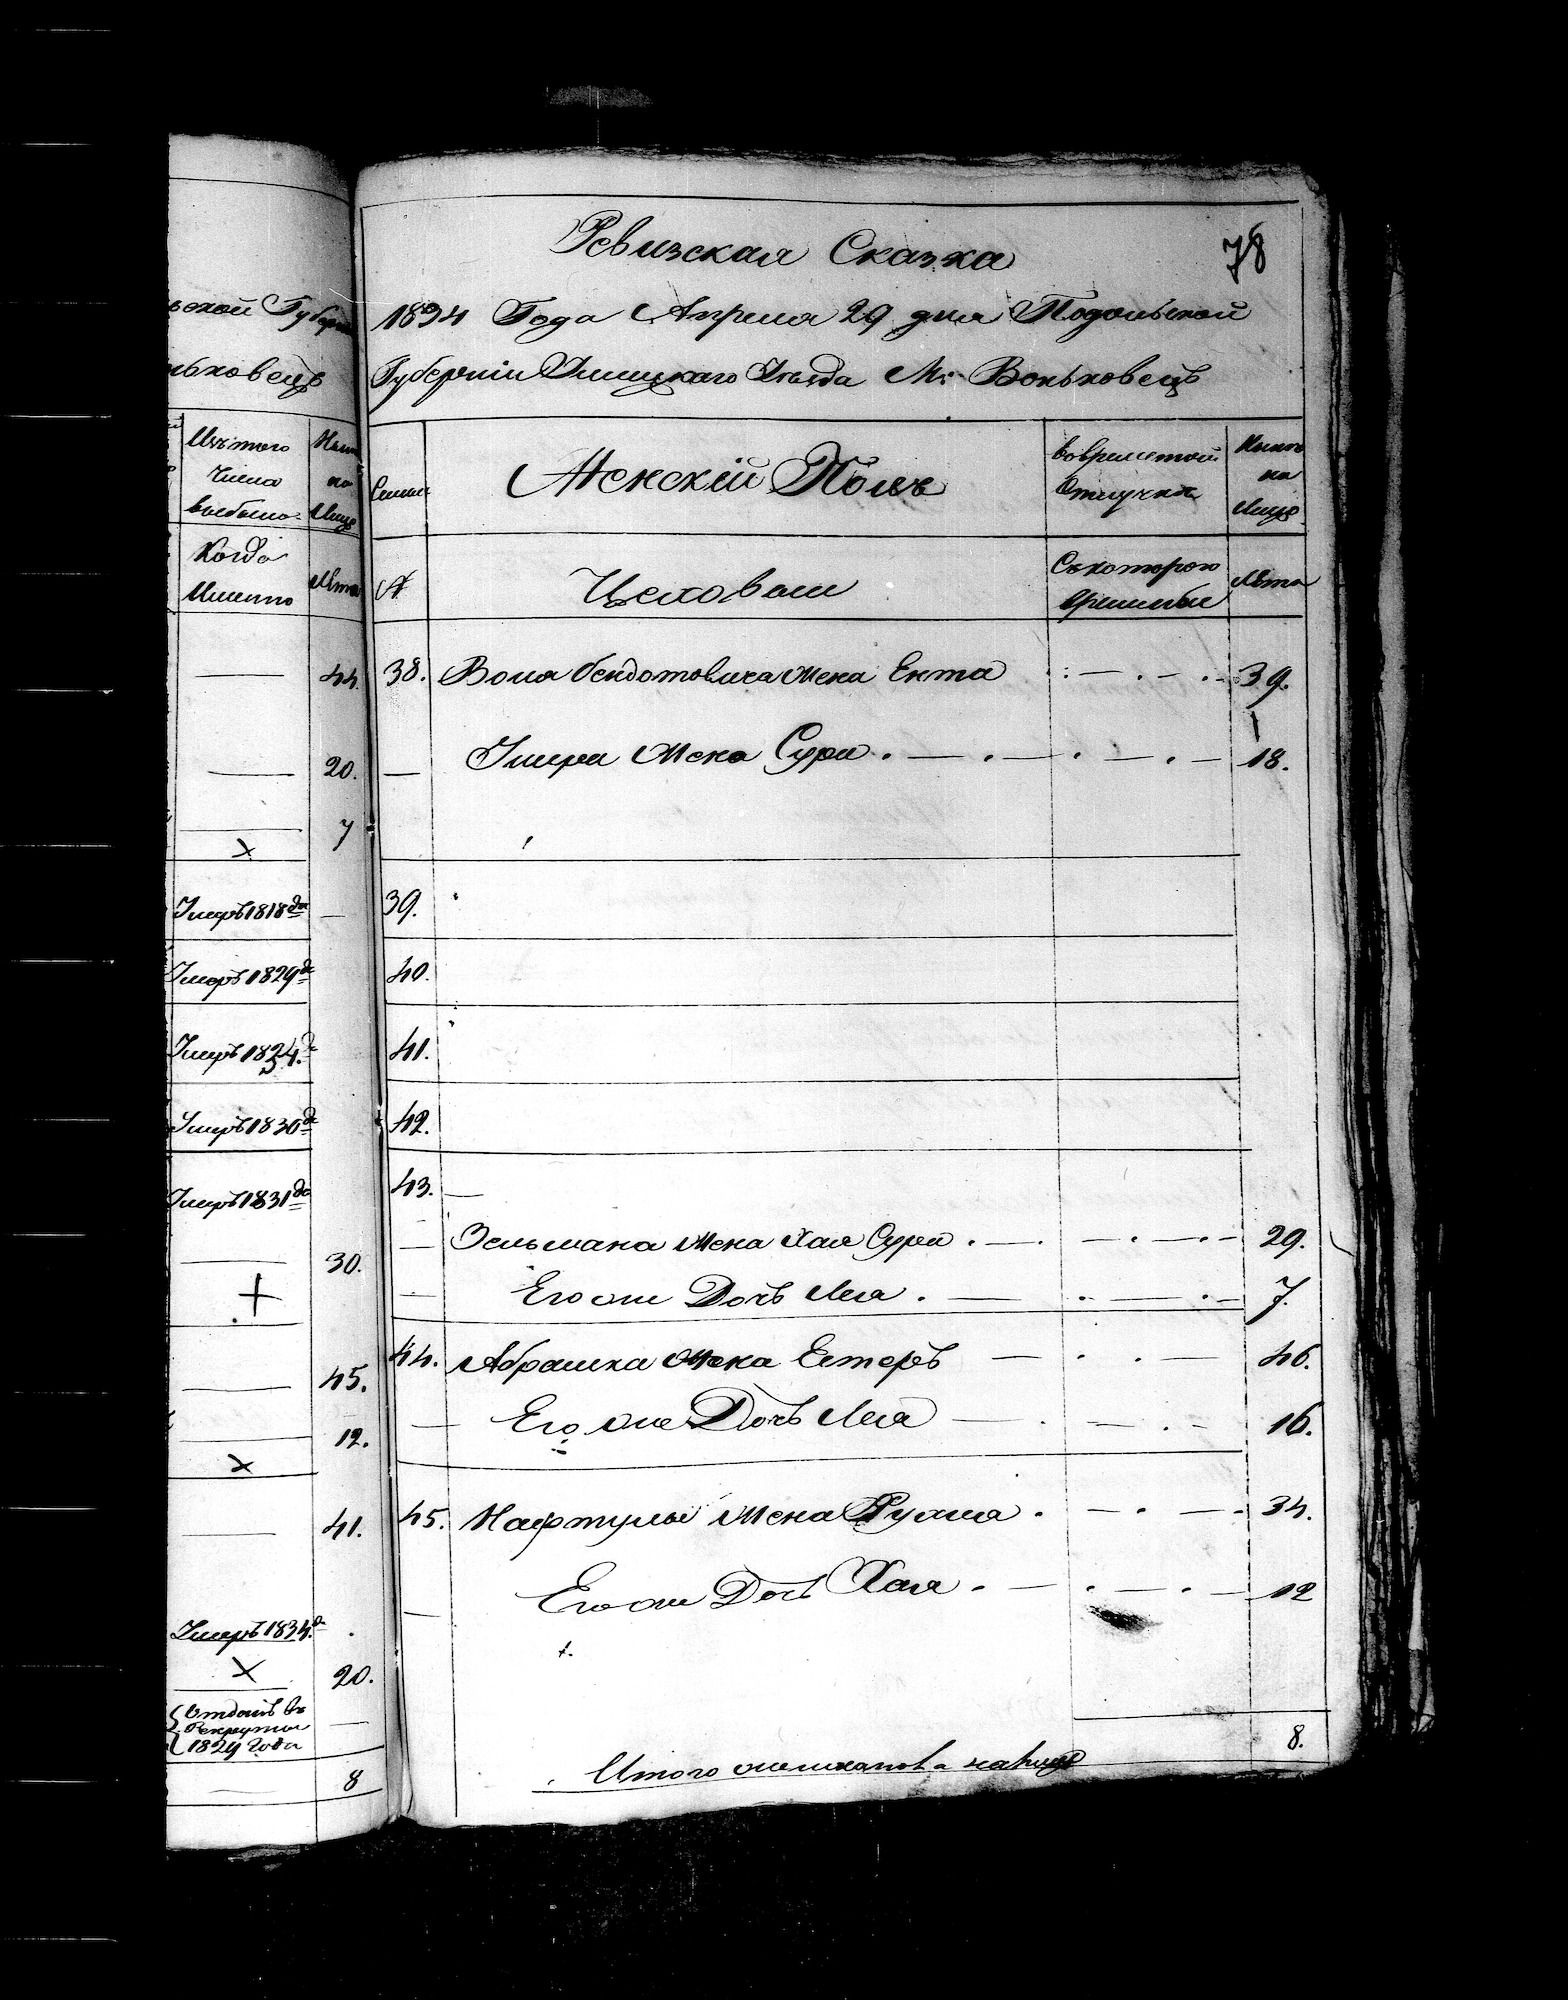 ьской Губерн
ньковецъ
Изъ того
Числа
выбыло
Когда
Имянно
Нынѣ
на
Лице
Лѣта
44.
20.
7
Умеръ 1818 да
Умеръ 1829 да
Умеръ 1824. да
Умеръ 1830 да
Умеръ 1831 да
30.
45.
12.
41.
Умеръ 1834. да
20.
Отданъ въ
Рекруты
1829 Года
8
78
Ревизская Сказка
1834 Года Апреля 29 дня Подольской
Губерніи Ушицкаго Уѣзда М: Воньковецъ
Семьи Женскій Полъ вовременной Отлучкѣ Нынѣ на Лице
№ Цеховыи Скоторого времяни Лѣта
38. Воля Жена Ента 39.
Умера Жена Сура 18.
39.
40.
41.
42.
43.
Зельмана Жена Хая Сура 29.
Его же Дочь Лея 7.
44. Абрашка Жена Естеръ 46.
Его же Дочь Лея 16.
45. Нафтулы Жена Рухля 34.
Его же Дочь Хая 12
Итого женска пола налице 8.